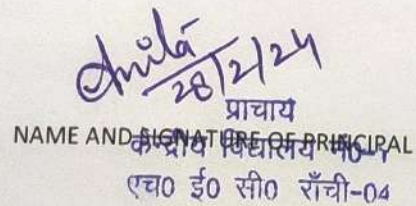 Anita
28/2/24
प्राचार्य
NAME AND SIGNATURE OF PRINCIPAL
केन्द्रीय विद्यालय नं0-1
एच0 ई0 सी0 राँची-04